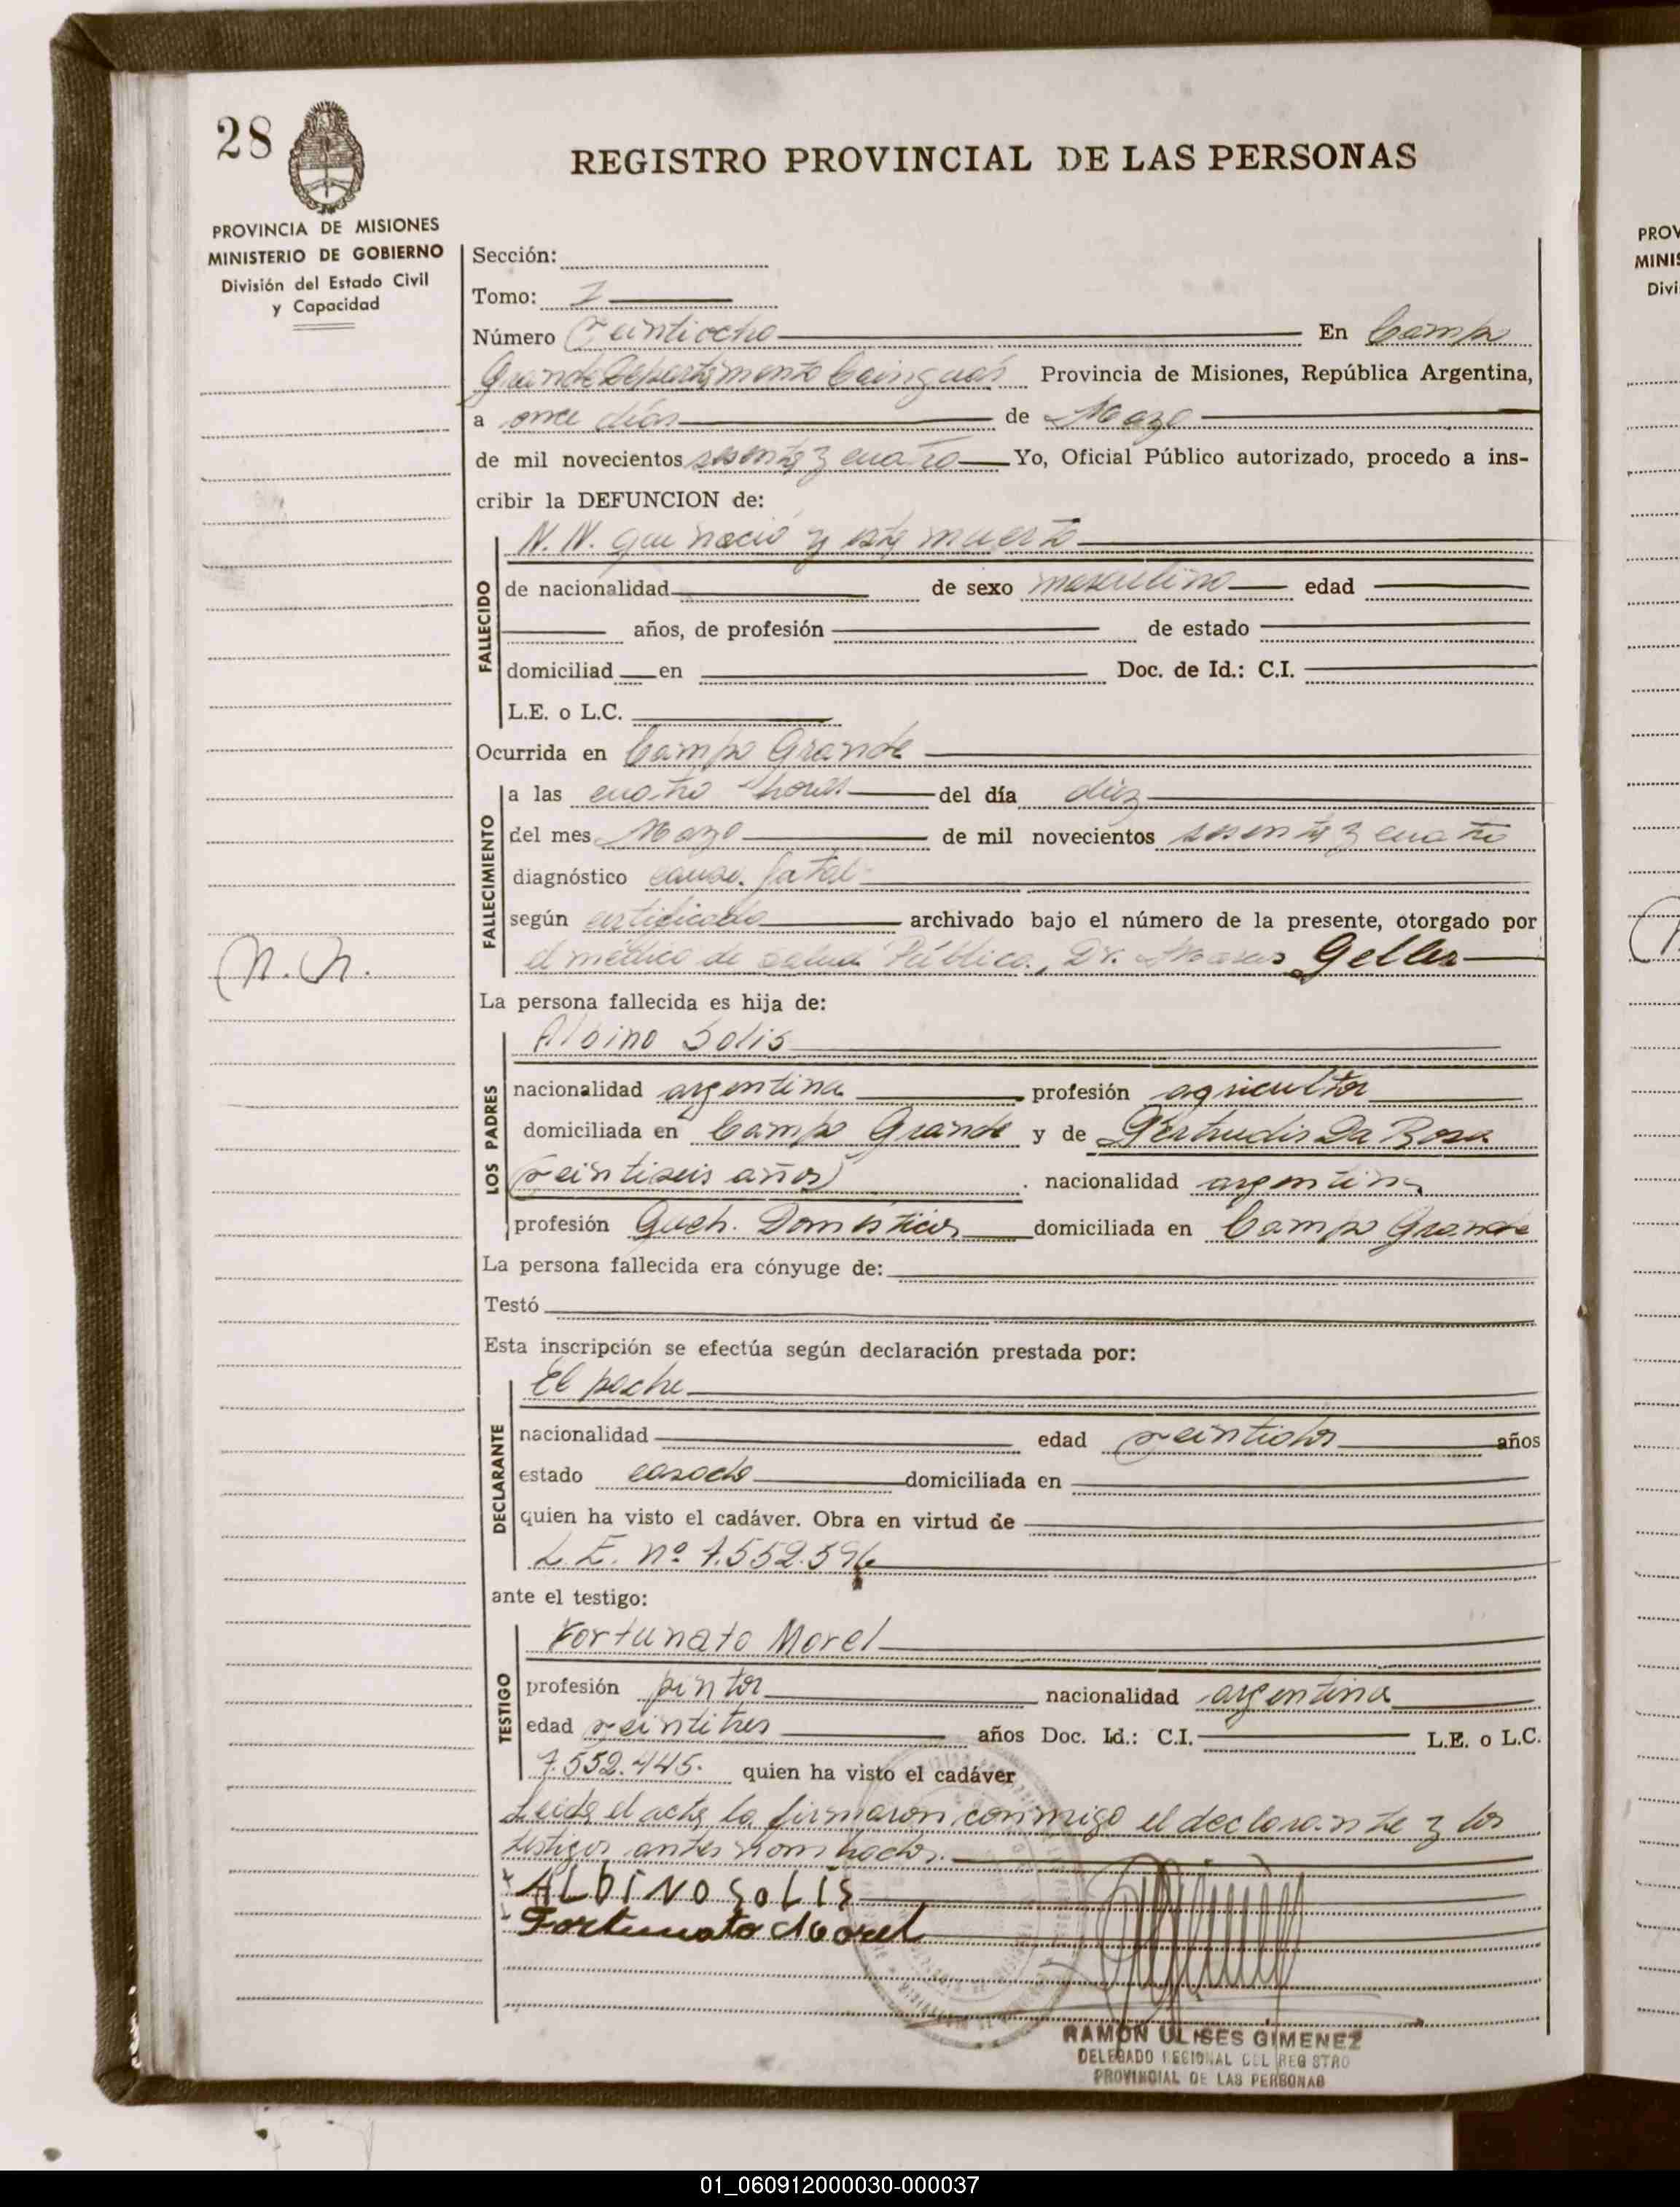 28
REGISTRO PROVINCIAL DE LAS PERSONAS
PROVINCIA DE MISIONES
MINISTERIO DE GOBIERNO
División del Estado Civil
y Capacidad
Sección:
Tomo: I
Número Veintiocho En Campo
Grande Departamento Cainguás Provincia de Misiones, República Argentina,
a once días de Mayo
de mil novecientos sesenta y cuatro Yo, Oficial Público autorizado, procedo a ins-
cribir la DEFUNCION de:
N.N. que nació y está muerto
FALLECIDO
de nacionalidad de sexo masculino edad
años, de profesión de estado
domiciliad en Doc. de Id.: C.I.
L.E. o L.C.
Ocurrida en Campo Grande
FALLECIMIENTO
a las cuatro horas del día diez
del mes Mayo de mil novecientos sesenta y cuatro
diagnóstico causa fatal
según certificado archivado bajo el número de la presente, otorgado por
el médico de Salud Pública, Dr. Geller
N.N.
La persona fallecida es hija de:
LOS PADRES
Albino Solis
nacionalidad argentina profesión agricultor
domiciliada en Campo Grande y de Gertrudis Da Rosa
(veintiseis años) nacionalidad argentina
profesión Queh. Domésticos domiciliada en Campo Grande
La persona fallecida era cónyuge de:
Testó
Esta inscripción se efectúa según declaración prestada por:
DECLARANTE
El padre
nacionalidad edad años
estado casado domiciliada en
quien ha visto el cadáver. Obra en virtud de
L.E. nº 7.552.596
ante el testigo:
TESTIGO
Fortunato Morel
profesión pintor nacionalidad argentina
edad veintitres años Doc. Id.: C.I. L.E. o L.C.
7.552.445. quien ha visto el cadáver
Leída el acta la firmaron conmigo el declarante y los
testigos antes nombrados.
ALbiNO SOLIS
Fortunato Morel
RAMON ULISES GIMENEZ
DELEGADO REGIONAL DEL REGISTRO
PROVINCIAL DE LAS PERSONAS
PROV
MINIS
Divi
01_060912000030-000037